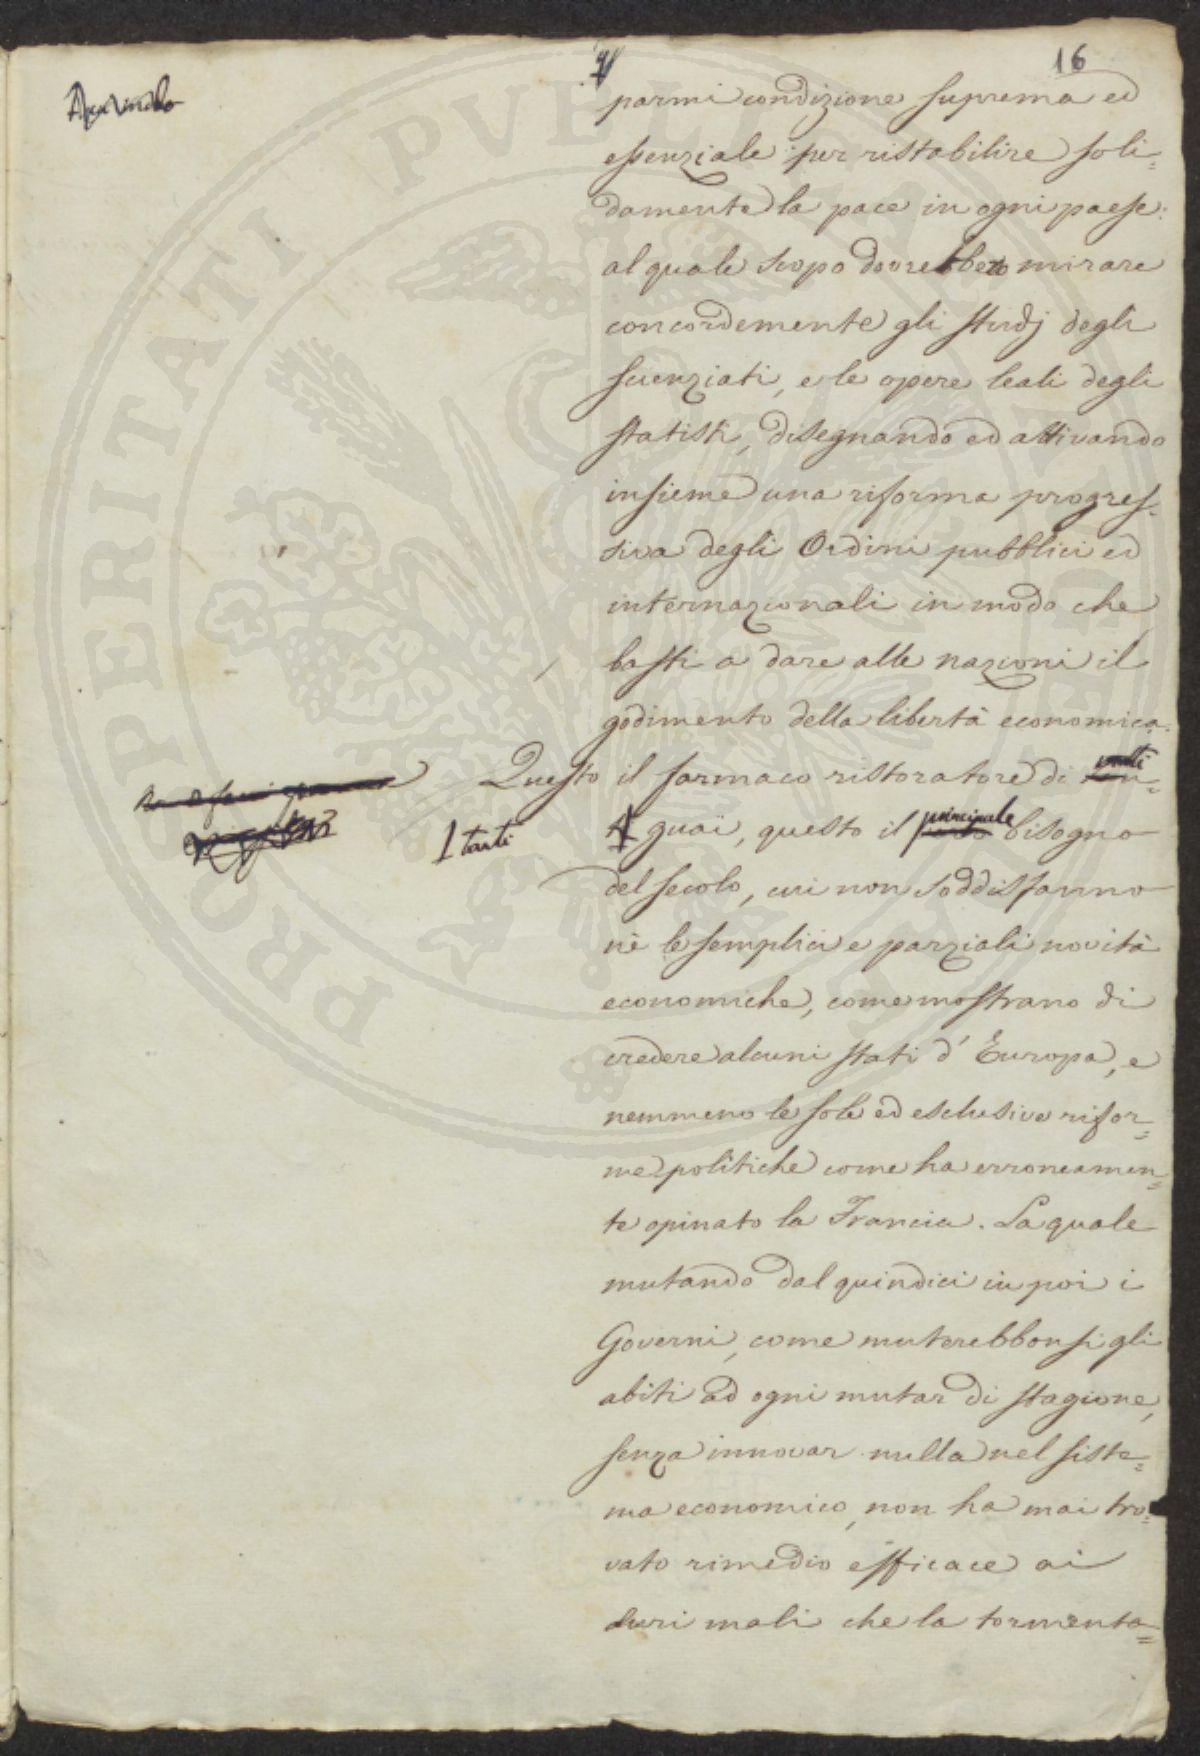 16
parmi condizione suprema ed
essenziale per ristabilire soli=
damente la pace in ogni paese:
al quale scopo dovrebbero mirare
concordemente gli studj degli
scienziati, e le opere leali degli
statisti, disegnando ed attivando
insieme una riforma progres=
siva degli Ordini pubblici ed
internazionali in modo che
basti a dare alle nazioni il
godimento della libertà economica.
Questo il farmaco ristoratore di molti
I tanti
guai, questo il principale bisogno
del secolo, cui non soddisfanno
nè le semplici e parziali novità
economiche, come mostrano di
credere alcuni stati d'Europa, e
nemmeno le sole ed esclusive rifor=
me politiche come ha erroneamen=
te opinato la Francia. La quale
mutando dal quindici in poi i
Governi, come muterebbonsi gli
abiti ad ogni mutar di stagione,
senza innovar nulla nel siste=
ma economico, non ha mai tro=
vato rimedio efficace ai
duri mali che la tormenta=
PROPERITATI PVBLICAE